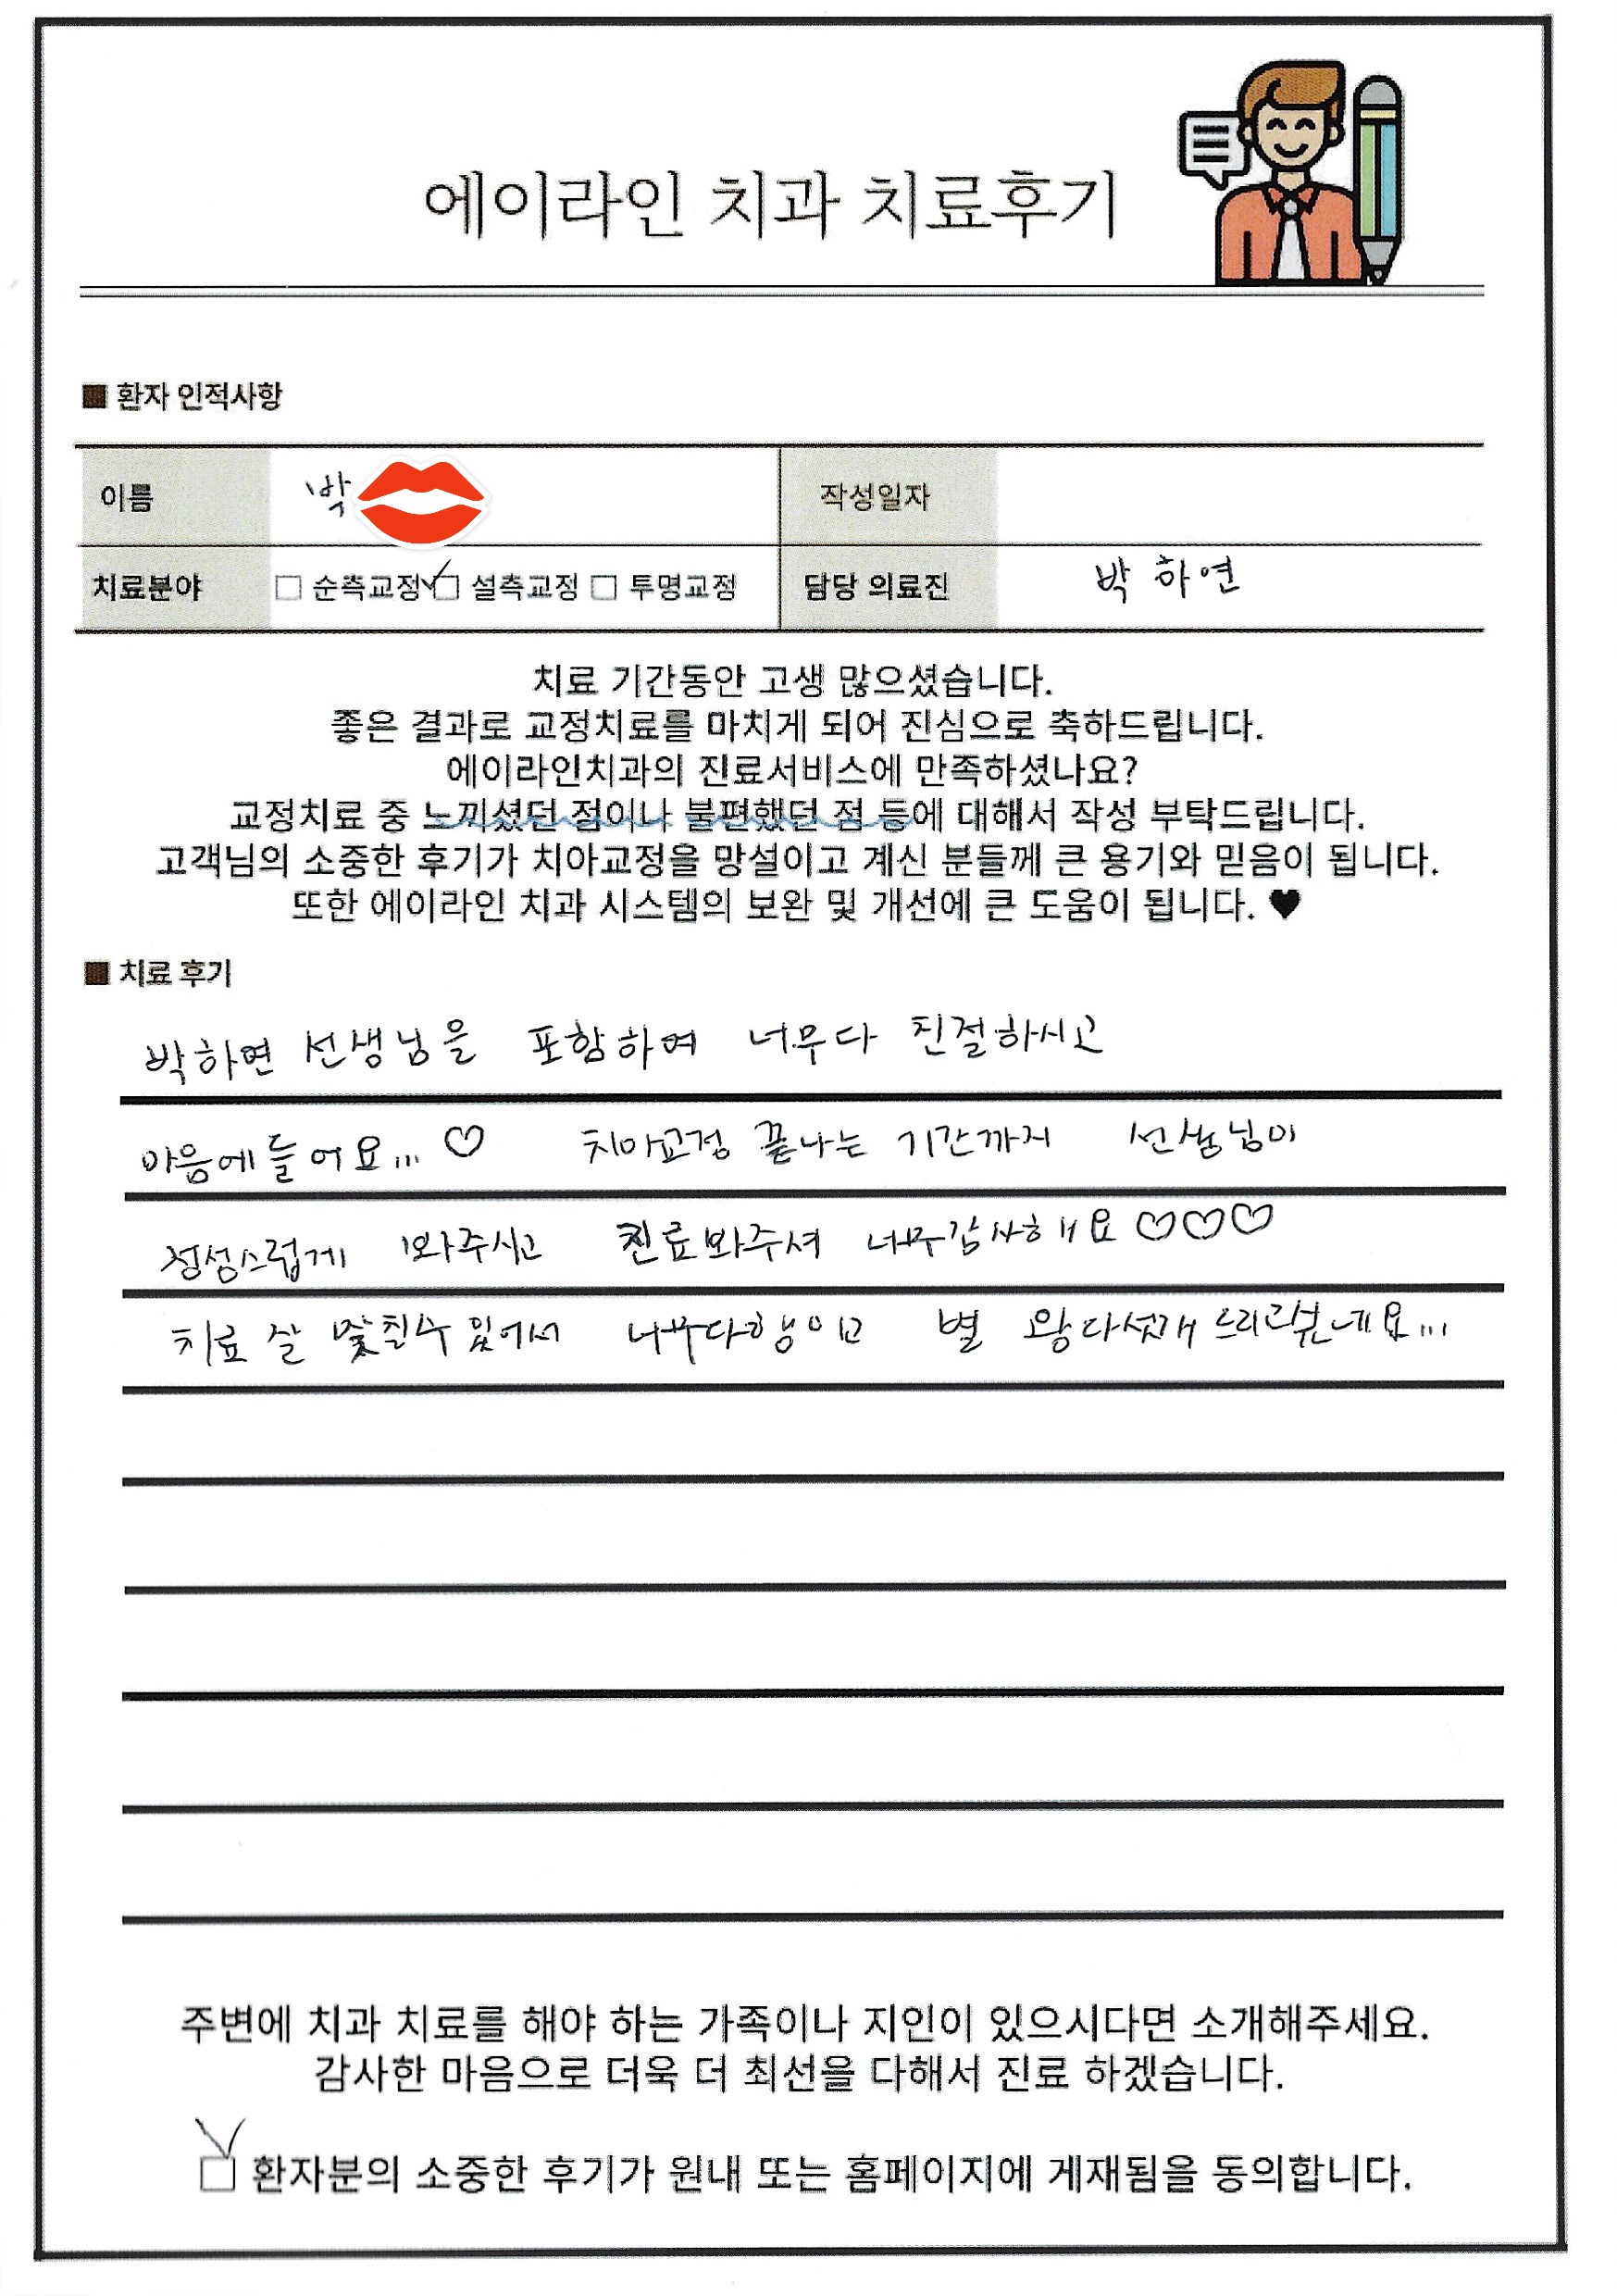 에이라인 치과 치료후기
■ 환자 인적사항
이름 박 작성일자
치료분야 □ 순측교정 ☑ 설측교정 □ 투명교정 담당 의료진 박하연
치료 기간동안 고생 많으셨습니다.
좋은 결과로 교정치료를 마치게 되어 진심으로 축하드립니다.
에이라인치과의 진료서비스에 만족하셨나요?
교정치료 중 느끼셨던 점이나 불편했던 점 등에 대해서 작성 부탁드립니다.
고객님의 소중한 후기가 치아교정을 망설이고 계신 분들께 큰 용기와 믿음이 됩니다.
또한 에이라인 치과 시스템의 보완 및 개선에 큰 도움이 됩니다. ♥
■ 치료 후기
박하연 선생님을 포함하여 너무다 친절하시고
마음에들어요... ♡ 치아교정 끝나는 기간까지 선생님이
정성스럽게 봐주시고 진료봐주셔 너무감사해요 ♡♡♡
치료 잘 맟칠수있어서 너무다행이고 별 왕다섯개 드리고싶네요...
주변에 치과 치료를 해야 하는 가족이나 지인이 있으시다면 소개해주세요.
감사한 마음으로 더욱 더 최선을 다해서 진료 하겠습니다.
☑ 환자분의 소중한 후기가 원내 또는 홈페이지에 게재됨을 동의합니다.